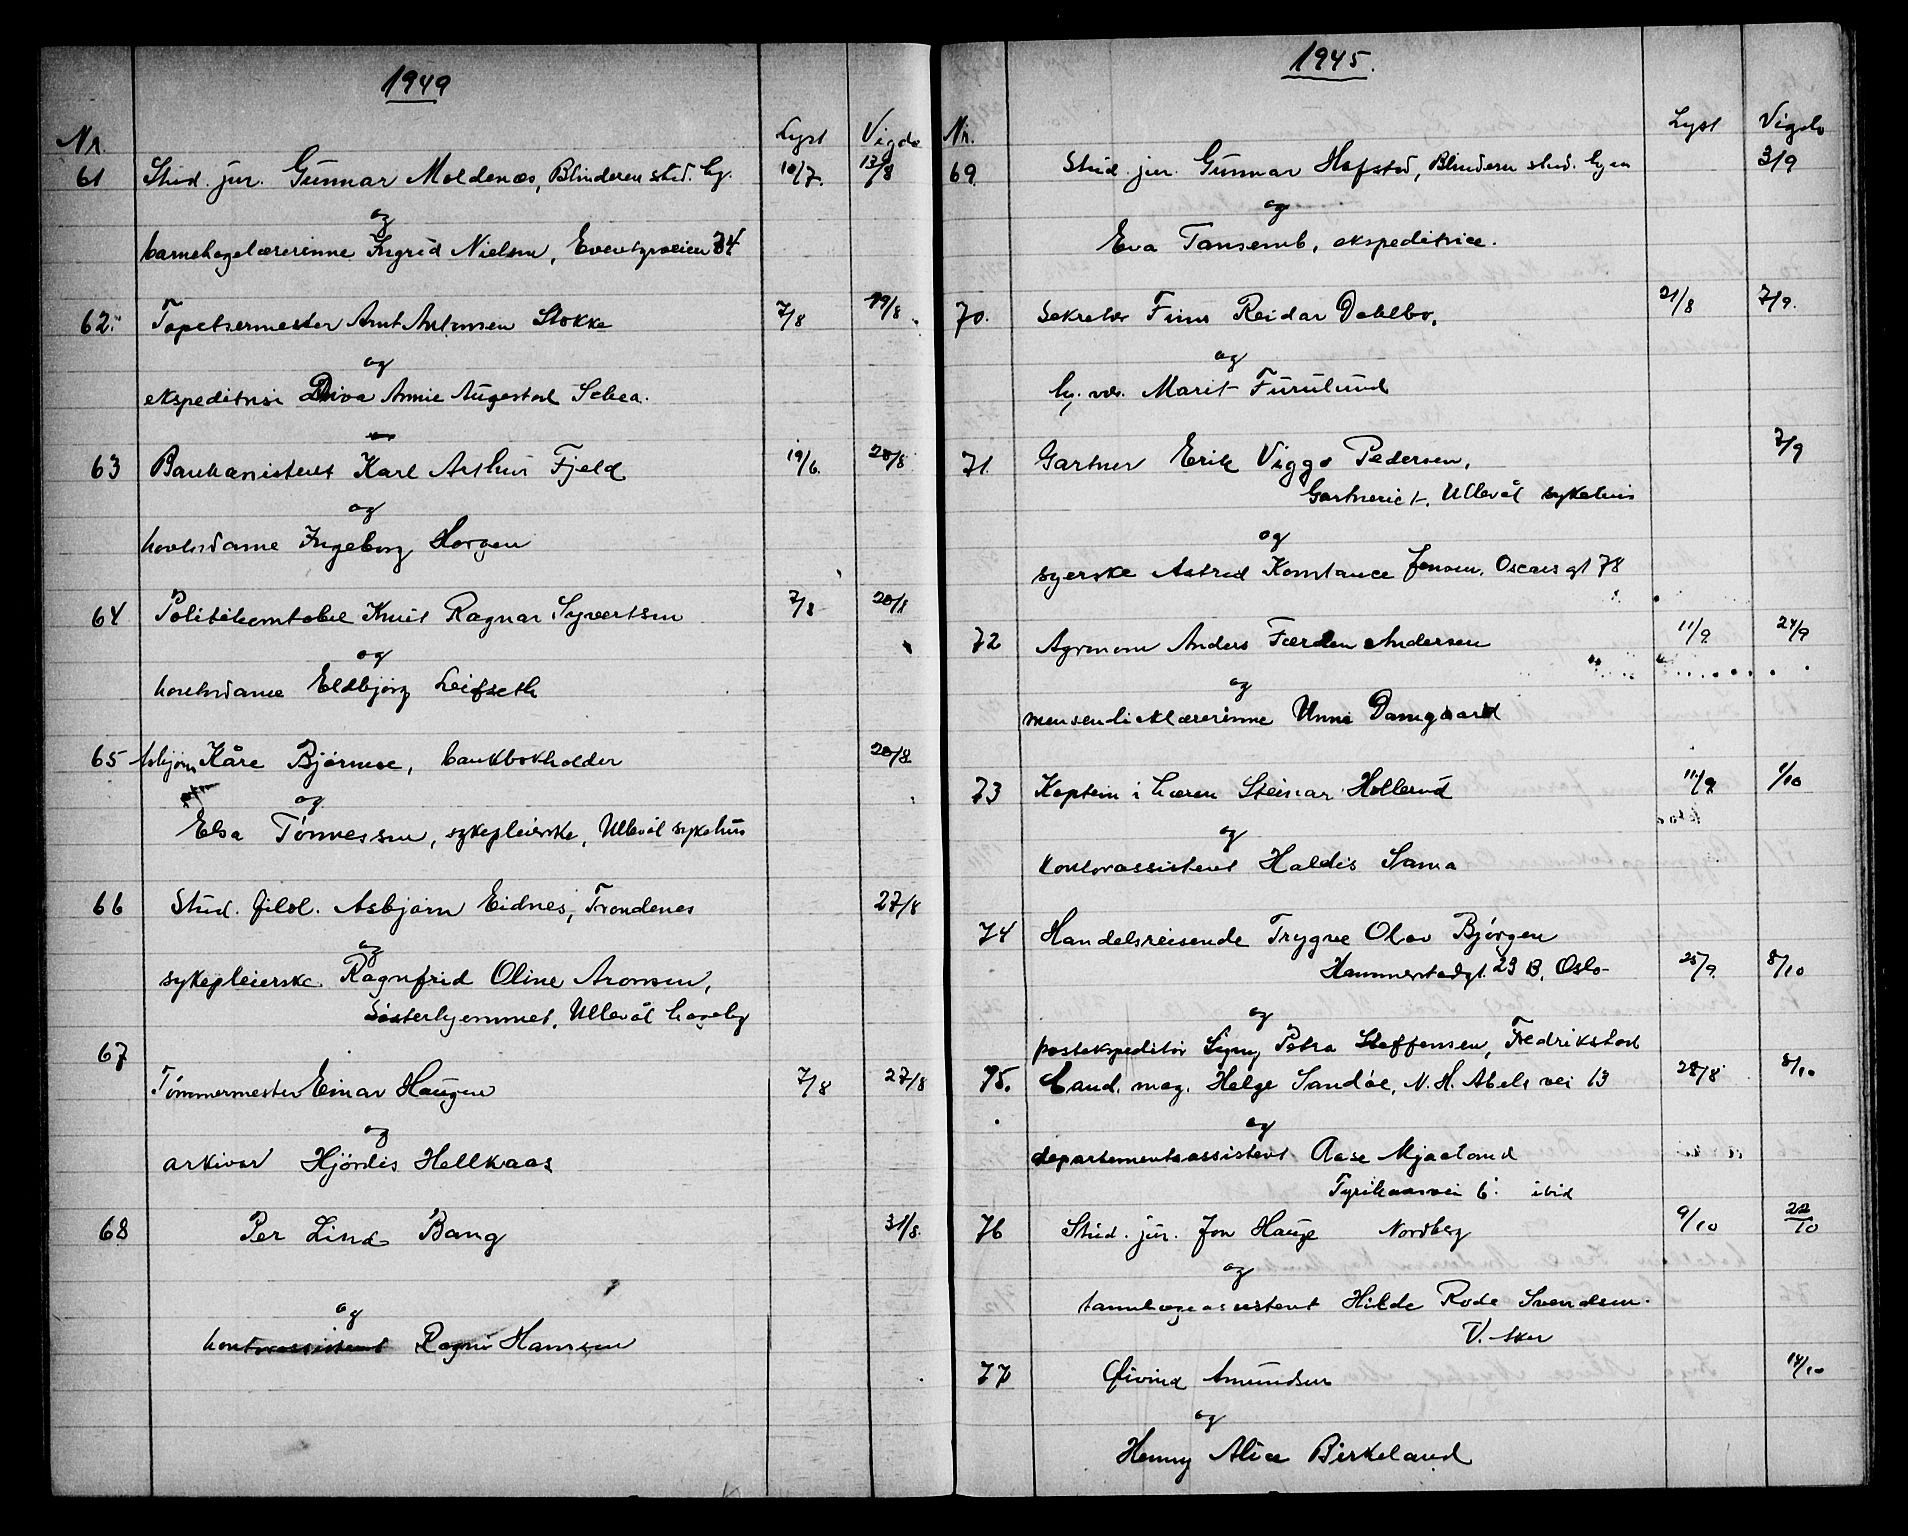 1949
Nr Lyst Vigde
61 Stud. jur. Gunnar Moldenæs, Blinderen stud. by. 10/7. 13/8
og
barnehagelærerinne Ingrid Nielsen, Eventyrveien 34
62. Tapetsermester Arnt Antonsen Stokke 7/8 19/8
og
ekspeditrise Diva Annie Augestad Schea.
63 Baukasistent Karl Arthur Fjeld 19/6. 20/8
og
kontordame Ingeborg Horgen
64 Politikonstabel Knut Ragnar Syvertsen 7/8 20/8
og
kontordame Eldbjørg Leifseth
65 Asbjørn Kåre Bjørnøe, bankbokholder 20/8
og
Elsa Tønnessen, sykepleierske, Ullevål sykehus
66 Stud. filol. Asbjørn Eidnes, Trondenes 27/8
og
sykepleierske Ragnfrid Oline Aronsen,
Søsterhjemmet, Ullevål hageby
67
Tømmermester Einar Haugen 7/8 27/8
og
arkivar Hjørdis Hellkaas
68 Per Lind Bang 31/8.
og
kontorassistent Ragni Hansen
1945.
Nr. Lyst Vigde
69. Stud. jur. Gunnar Hofstad, Blindern stud. byen 3/9
og
Eva Tansemb, ekspeditrice.
70. Sekretær Finn Reidar Dahlbo, 21/8 7/9.
og
Marit Furulund
71. Gartner Erik Viggo Pedersen, 7/9
Gartneriet, Ullevål sykehus
og
syerske Astrid Konstance Jensen, Oscars gt 78
72 Agronom Anders Færden Andersen 11/9. 24/9
og
mensendiecklærerinne Unni Damgaard
73 Kaptein i hæren Steinar Hollerud 11/9. 1/10
og
kontorassistent Haldis Sama
74 Handelsreisende Trygve Olav Bjørgen
Hammerstadgt 23 B, Oslo 25/9. 8/10
og
postekspeditør Signy Petra Steffensen, Fredrikstad
75. Cand. mag. Helge Sandøe, N. H. Abels vei 13 28/8 8/10
og
departementsassistent Aase Mjaaland
Tyrihansvei 6. ibid
76 Stud. jur. Jon Hauge Nordberg 9/10 22/10
og
tannlegeassistent Hilde Rode Svendsen.
V. Aker
77 Øivind Amundsen 14/10
og
Henny Alice Birkeland